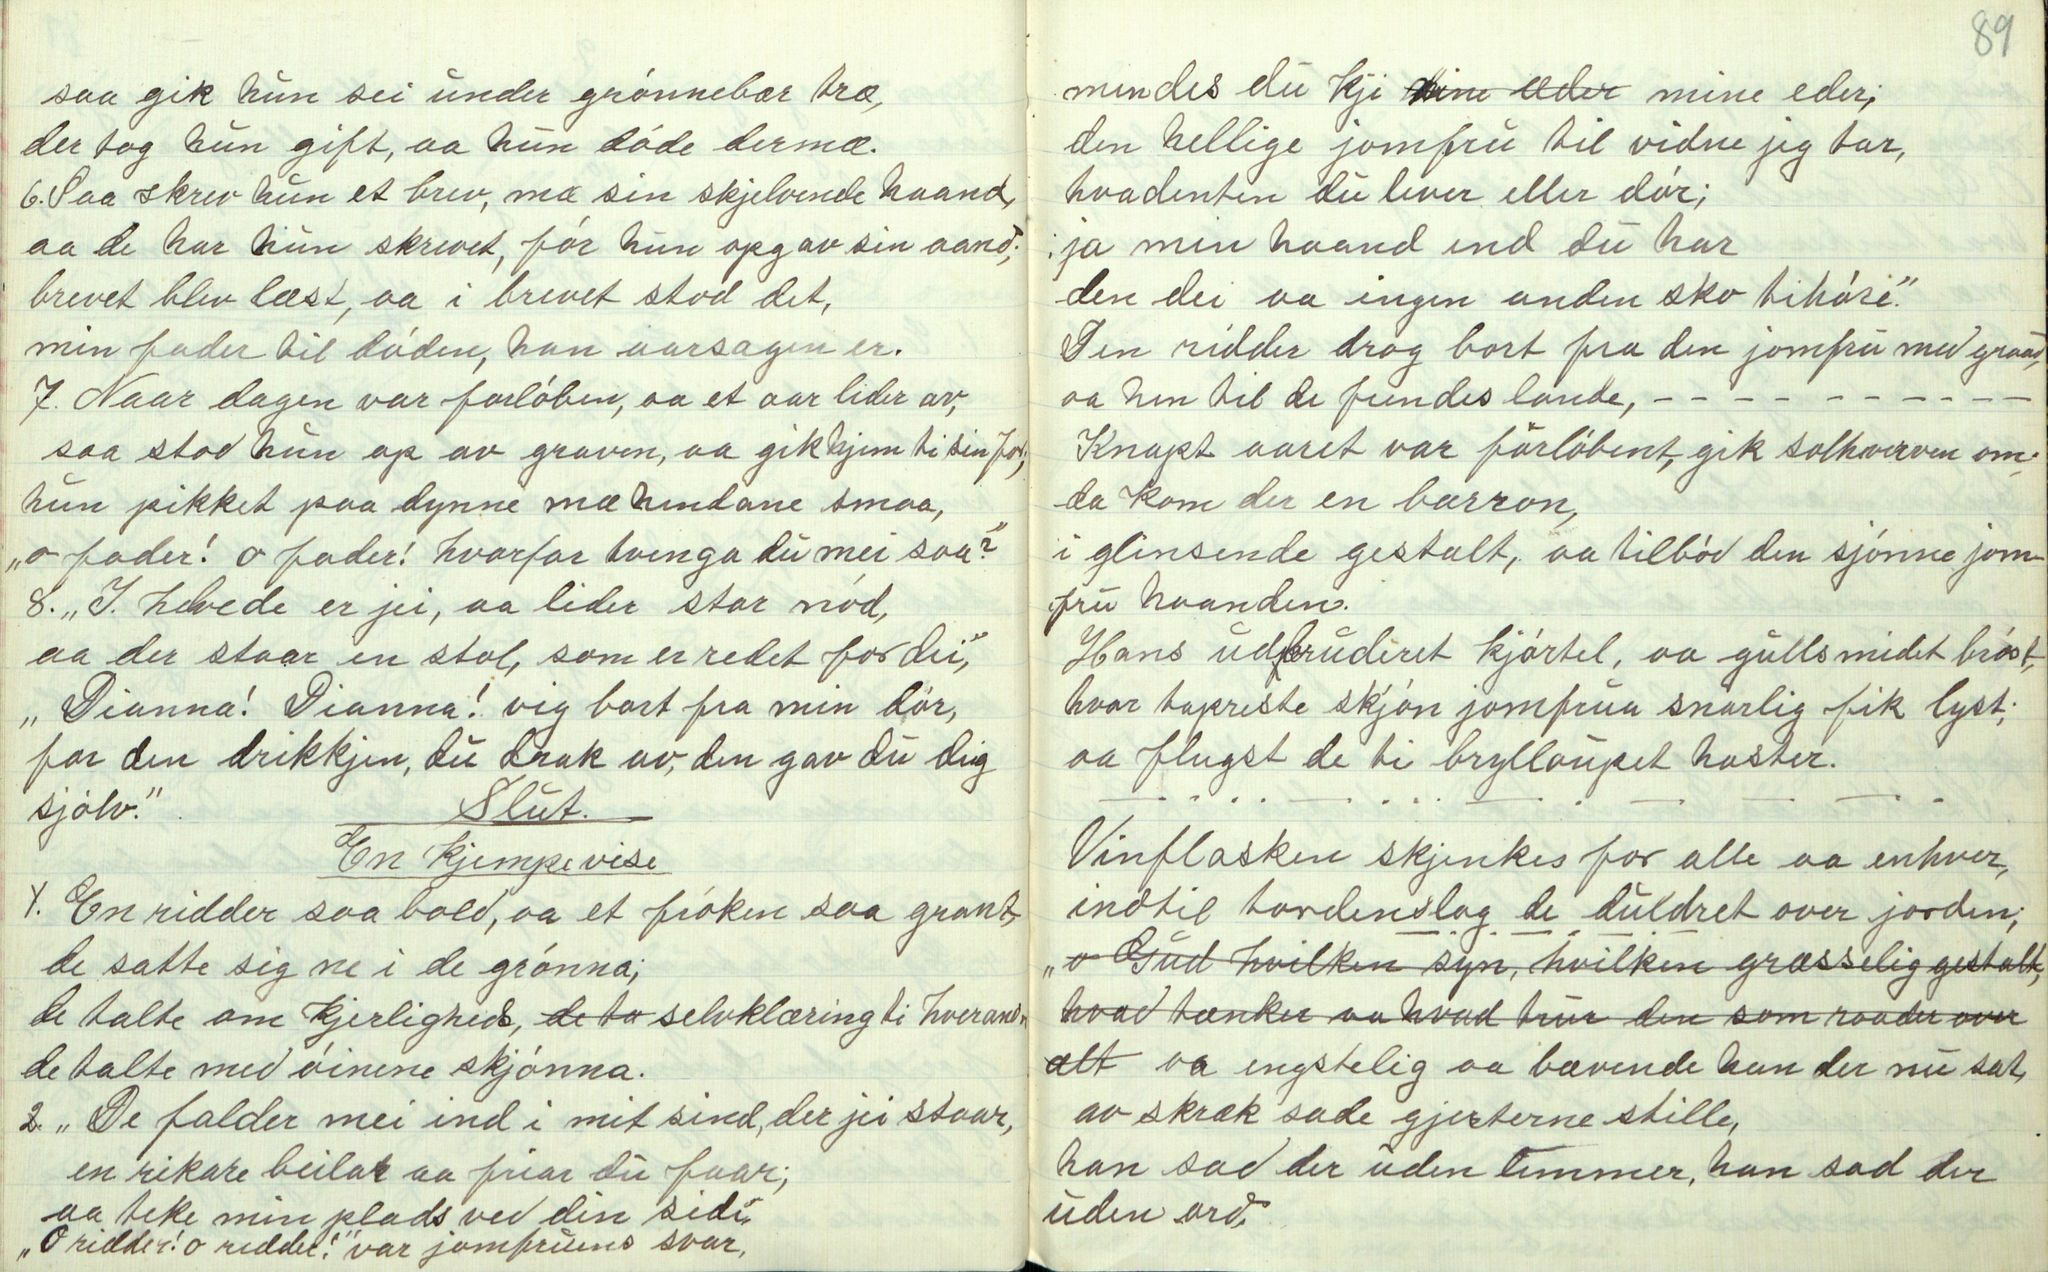 saa gik hun sei under grónnebær træ,
der tog hun gift, aa hun dóde dermæ.
6. Saa skrev hun et brev, mæ sin skjelvende haand,
aa de har hun skrevet, fór hun opgav sin aand;
brevet blev læst, aa i brevet stod det,
min fader til dóden, han aarsagen er.
7. Naar dagen var forlóben, aa et aar lider av,
saa stod hun op av graven, aa gik hjem ti sin far;
hun pikket paa dynne mæ hendane smaa,
„o fader! o fader! hvorfor tvenga du mei saa?"
8. „I. helvede er jei, aa lider stor nód,
aa der staar en stol, som er redet for dei,"
„Dianna! Dianna! vig bort fra min dór,
for den drikkjen, du drak av, den gav du dig
sjólv."
Slut.
En kjempevise
1. En ridder saa bold, aa et fróken saa grant,
de satte sig ne i de grónna;
de talte om kjerligheds, de to selvklæring ti hverandr
de talte med óinene skjónna.
2. „De falder mei ind i mit sind, der jei staar,
en rikare beilar aa friar du faar;
aa teke min plads ved din side,
„O ridder! o ridder!" var jomfruens svar,
89
mendes du kji mine eder mine eder;
den hellige jomfru til vidne jeg tar,
hvadenten du lever eller dór;
ja min haand end du har
den dei aa ingen anden sko tihóre."
Den ridder drog bort fra den jomfru med graad,
aa hen til de fiendes lande, – – – – – – – – – –
Knapt aaret var forlóbent, gik solhverven om;
da kom der en barron,
i glinsende gestalt, aa tilbód den sjónne jom-
fru haanden.
Hans udbruderet kjórtel, aa gullsmidet bróst,
hvor tapreste skjón jomfrua snarlig fik lyst;
aa flugst de ti brylloupet haster.
Vinflasken skjenkes for alle aa enhver,
indtil tordenslag de duldret over jorden;
„o Gud hvilken syn, hvilken græsselig gestalt,
hvad tænker aa hvad trur den som raader over
alt aa engstelig aa bævende han der nu sat,
av skræk sade gjesterne stille,
han sad der uden lemmer, han sad der
uden ord,